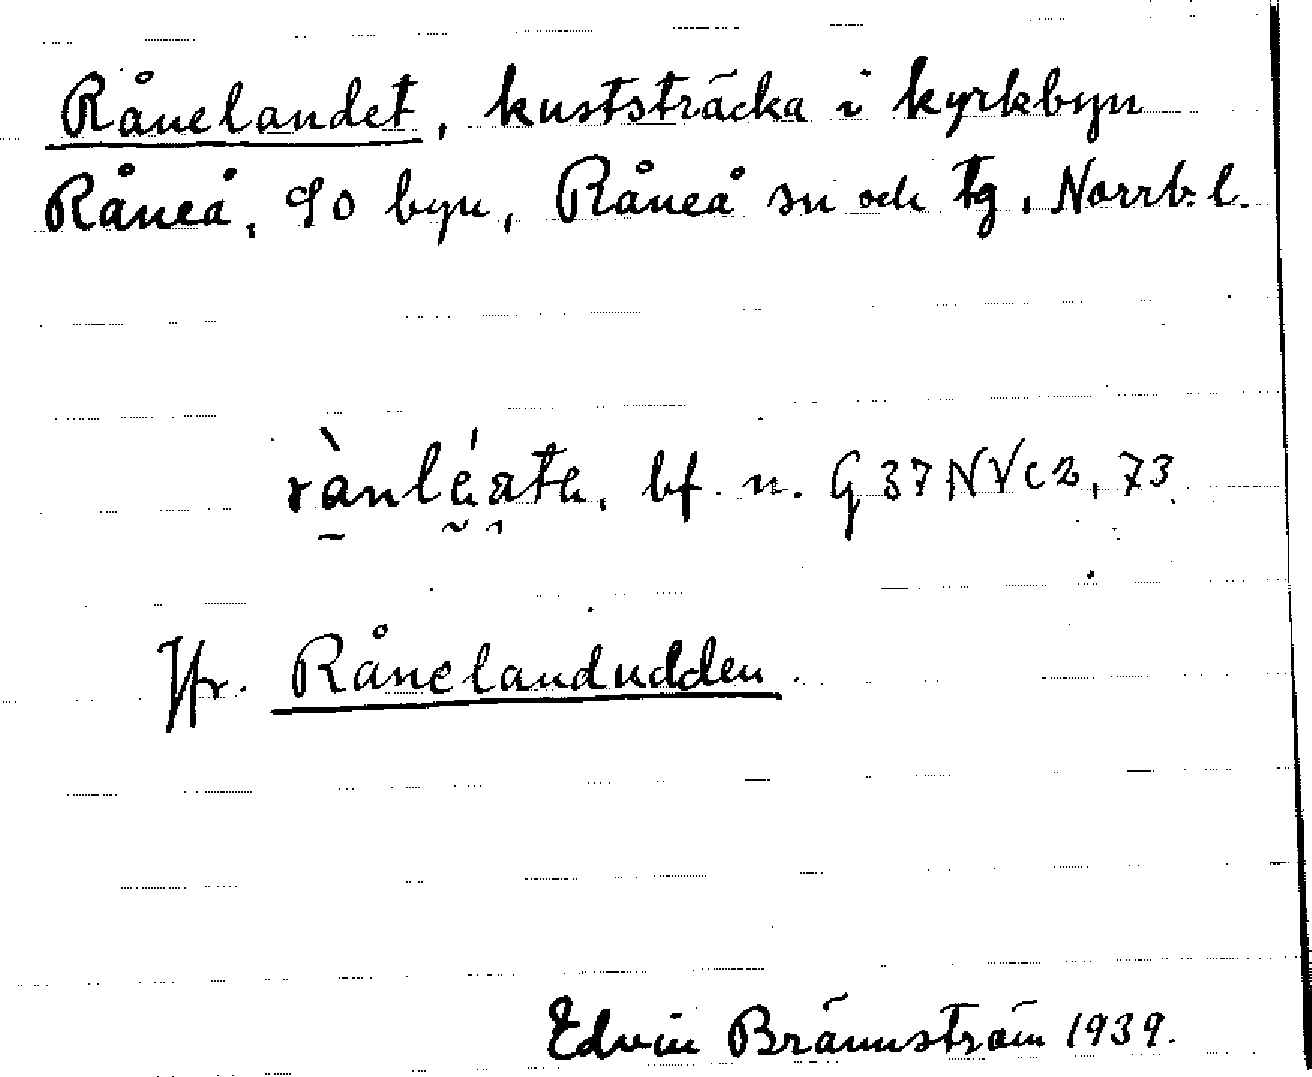 Rånelandet, kuststräcka i kyrkbyn
Råneå, SO byn, Råneå sn och tg, Norrb. l.
bf. n. G 37 NV c 2, 73.
Jfr. Rånelandudden.
Edvin Brännström 1939.